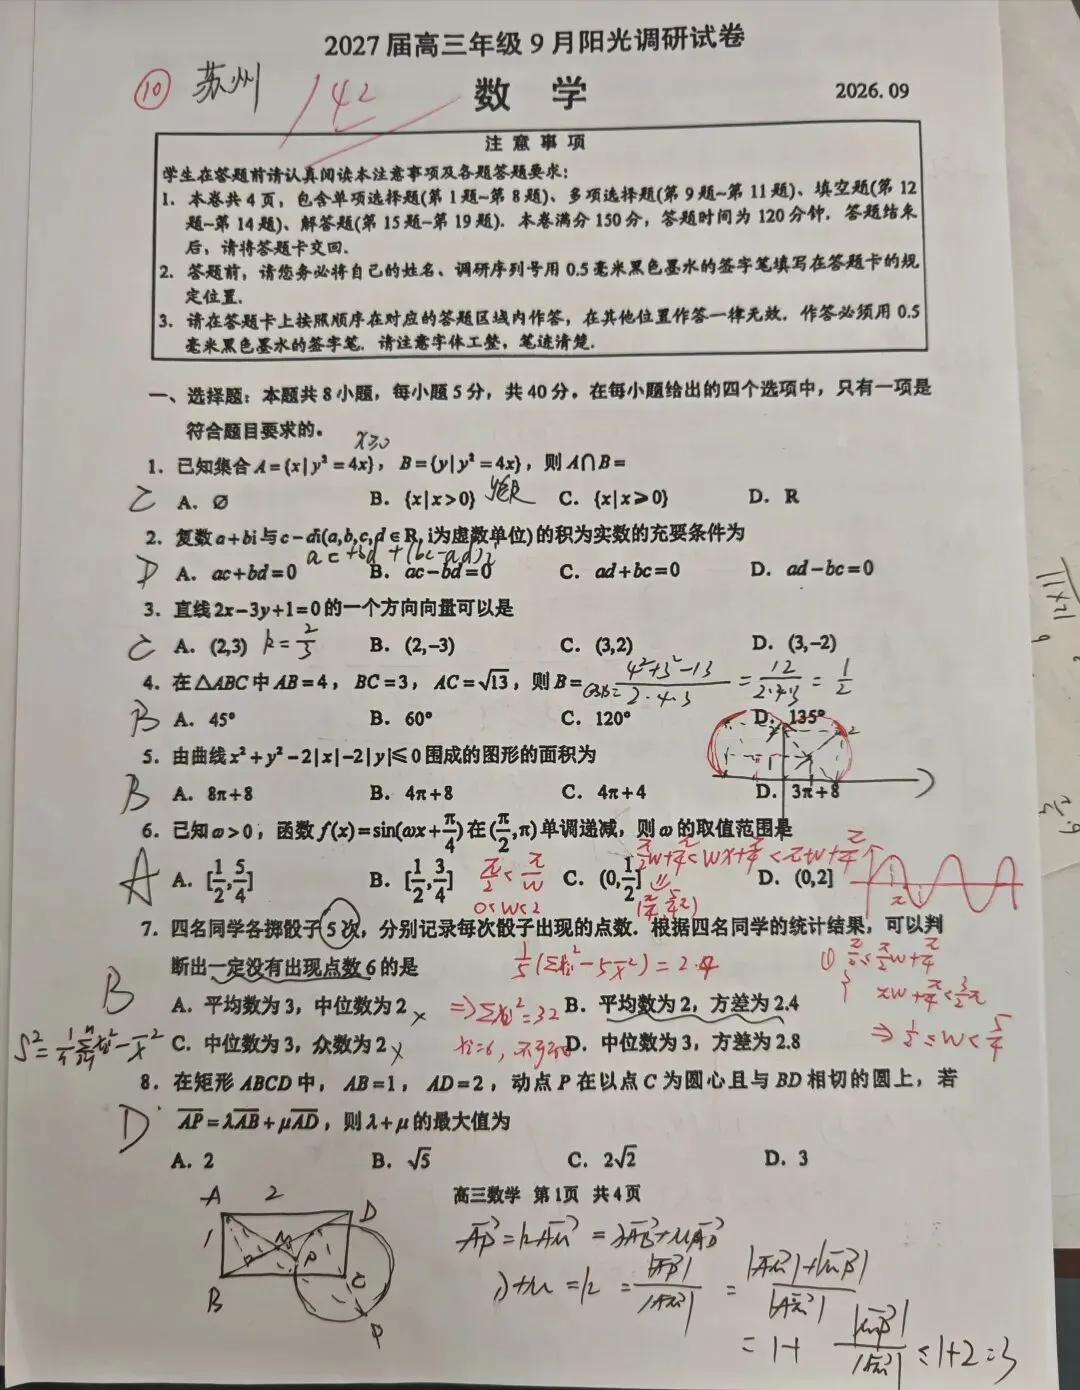 2027届高三年级9月阳光调研试卷
⑩ 苏州 142
数 学
2026.09
注意事项
学生在答题前请认真阅读本注意事项及各题答题要求:
1. 本卷共4页,包含单项选择题(第1题~第8题)、多项选择题(第9题~第11题)、填空题(第12
题~第14题)、解答题(第15题~第19题). 本卷满分150分,答题时间为120分钟. 答题结束
后,请将答题卡交回.
2. 答题前,请您务必将自己的姓名、调研序列号用0.5毫米黑色墨水的签字笔填写在答题卡的规
定位置.
3. 请在答题卡上按照顺序在对应的答题区域内作答,在其他位置作答一律无效. 作答必须用0.5
毫米黑色墨水的签字笔. 请注意字体工整,笔迹清楚.
一、选择题:本题共8小题,每小题5分,共40分。在每小题给出的四个选项中,只有一项是
符合题目要求的。
x≥0
1. 已知集合A={x|y²=4x},B={y|y²=4x},则A∩B=
C A. ∅ B. {x|x>0} y∈R C. {x|x⩾0} D. R
2. 复数a+bi与c-di(a,b,c,d∈R, i为虚数单位)的积为实数的充要条件为
ac+bd+(bc-ad)i
D A. ac+bd=0 B. ac-bd=0 C. ad+bc=0 D. ad-bc=0
3. 直线2x-3y+1=0的一个方向向量可以是
C A. (2,3) k=2/3 B. (2,-3) C. (3,2) D. (3,-2)
4. 在△ABC中AB=4,BC=3,AC=√13,则B= cosB= (4²+3²-13)/(2·4·3) = 12/(2·4·3) = 1/2
B A. 45° B. 60° C. 120° D. 135°
5. 由曲线x²+y²-2|x|-2|y|⩽0围成的图形的面积为
B A. 8π+8 B. 4π+8 C. 4π+4 D. 3π+8
6. 已知ω>0,函数f(x)=sin(ωx+π/4)在(π/2,π)单调递减,则ω的取值范围是
π/2w+π/4<wx+π/4<πw+π/4
A A. [1/2,5/4] B. [1/2,3/4] π/2<π/w C. (0,1/2] D. (0,2]
0<w<2
7. 四名同学各掷骰子5次,分别记录每次骰子出现的点数. 根据四名同学的统计结果,可以判
断出一定没有出现点数6的是 1/5(Σxi²-5x̄²)=2.4 ① π/2≤π/2w+π/4
πw+π/4≤3/2π
B A. 平均数为3,中位数为2 × ⇒Σxi²=32 B. 平均数为2,方差为2.4
⇒1/2≤w<5/4
C. 中位数为3,众数为2 × xi=6, D. 中位数为3,方差为2.8
8. 在矩形ABCD中,AB=1,AD=2,动点P在以点C为圆心且与BD相切的圆上,若
D AP=λAB+μAD,则λ+μ的最大值为
A. 2 B. √5 C. 2√2 D. 3
高三数学 第1页 共4页
A 2 D
1
B C
P
AP=kAM=λAB+μAD
λ+μ=k=|AP|/|AM|=(|AM|+|MP|)/|AM|
=1+|MP|/|AM|≤1+2=3